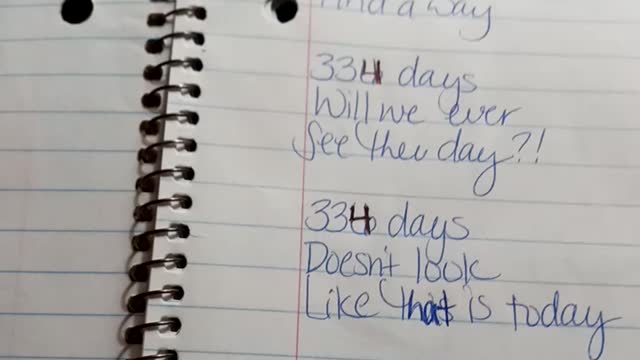 find a way
334 days
Will we ever
See the day?!
334 days
Doesn't look
Like that is today